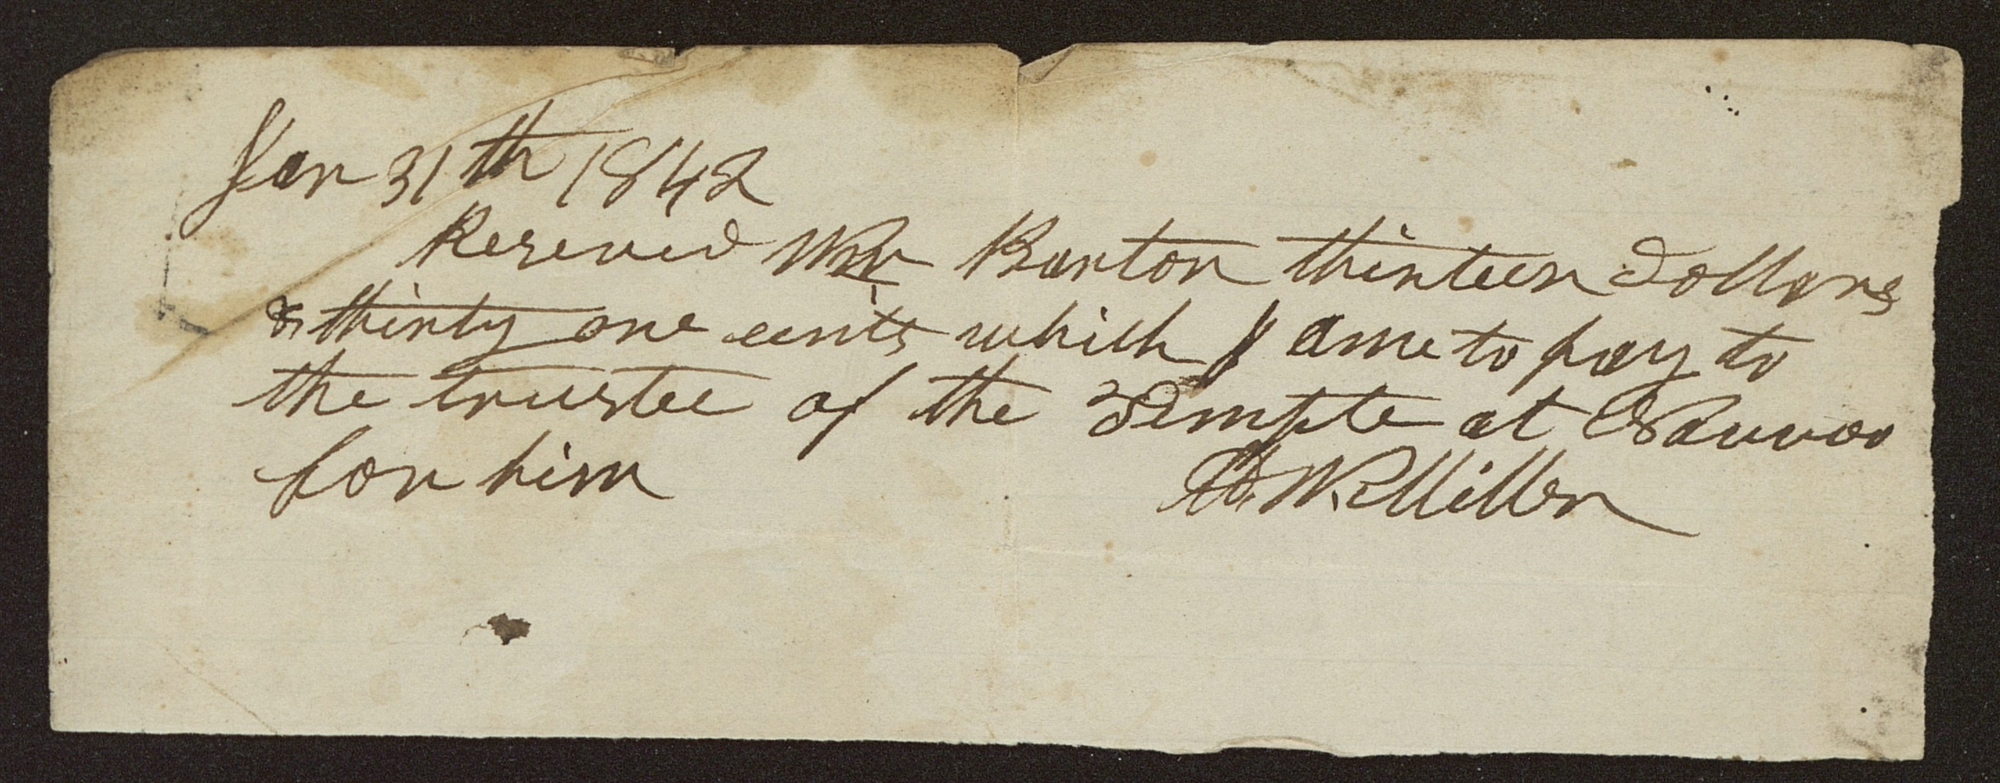 Jan 31th 1842
Reseved Wm Barton thirteen dollars
& thirty one cents which I ame to pay to
the trustee of the Temple at Nauvoo
for him W Miller